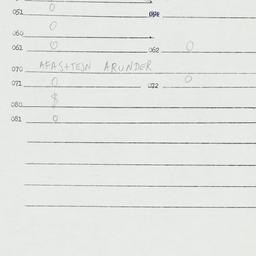 051 0 052
0
060
061 0 062 0
070 AFASHTEJN ARUNDER
071 0 072 0
080 $
081 0